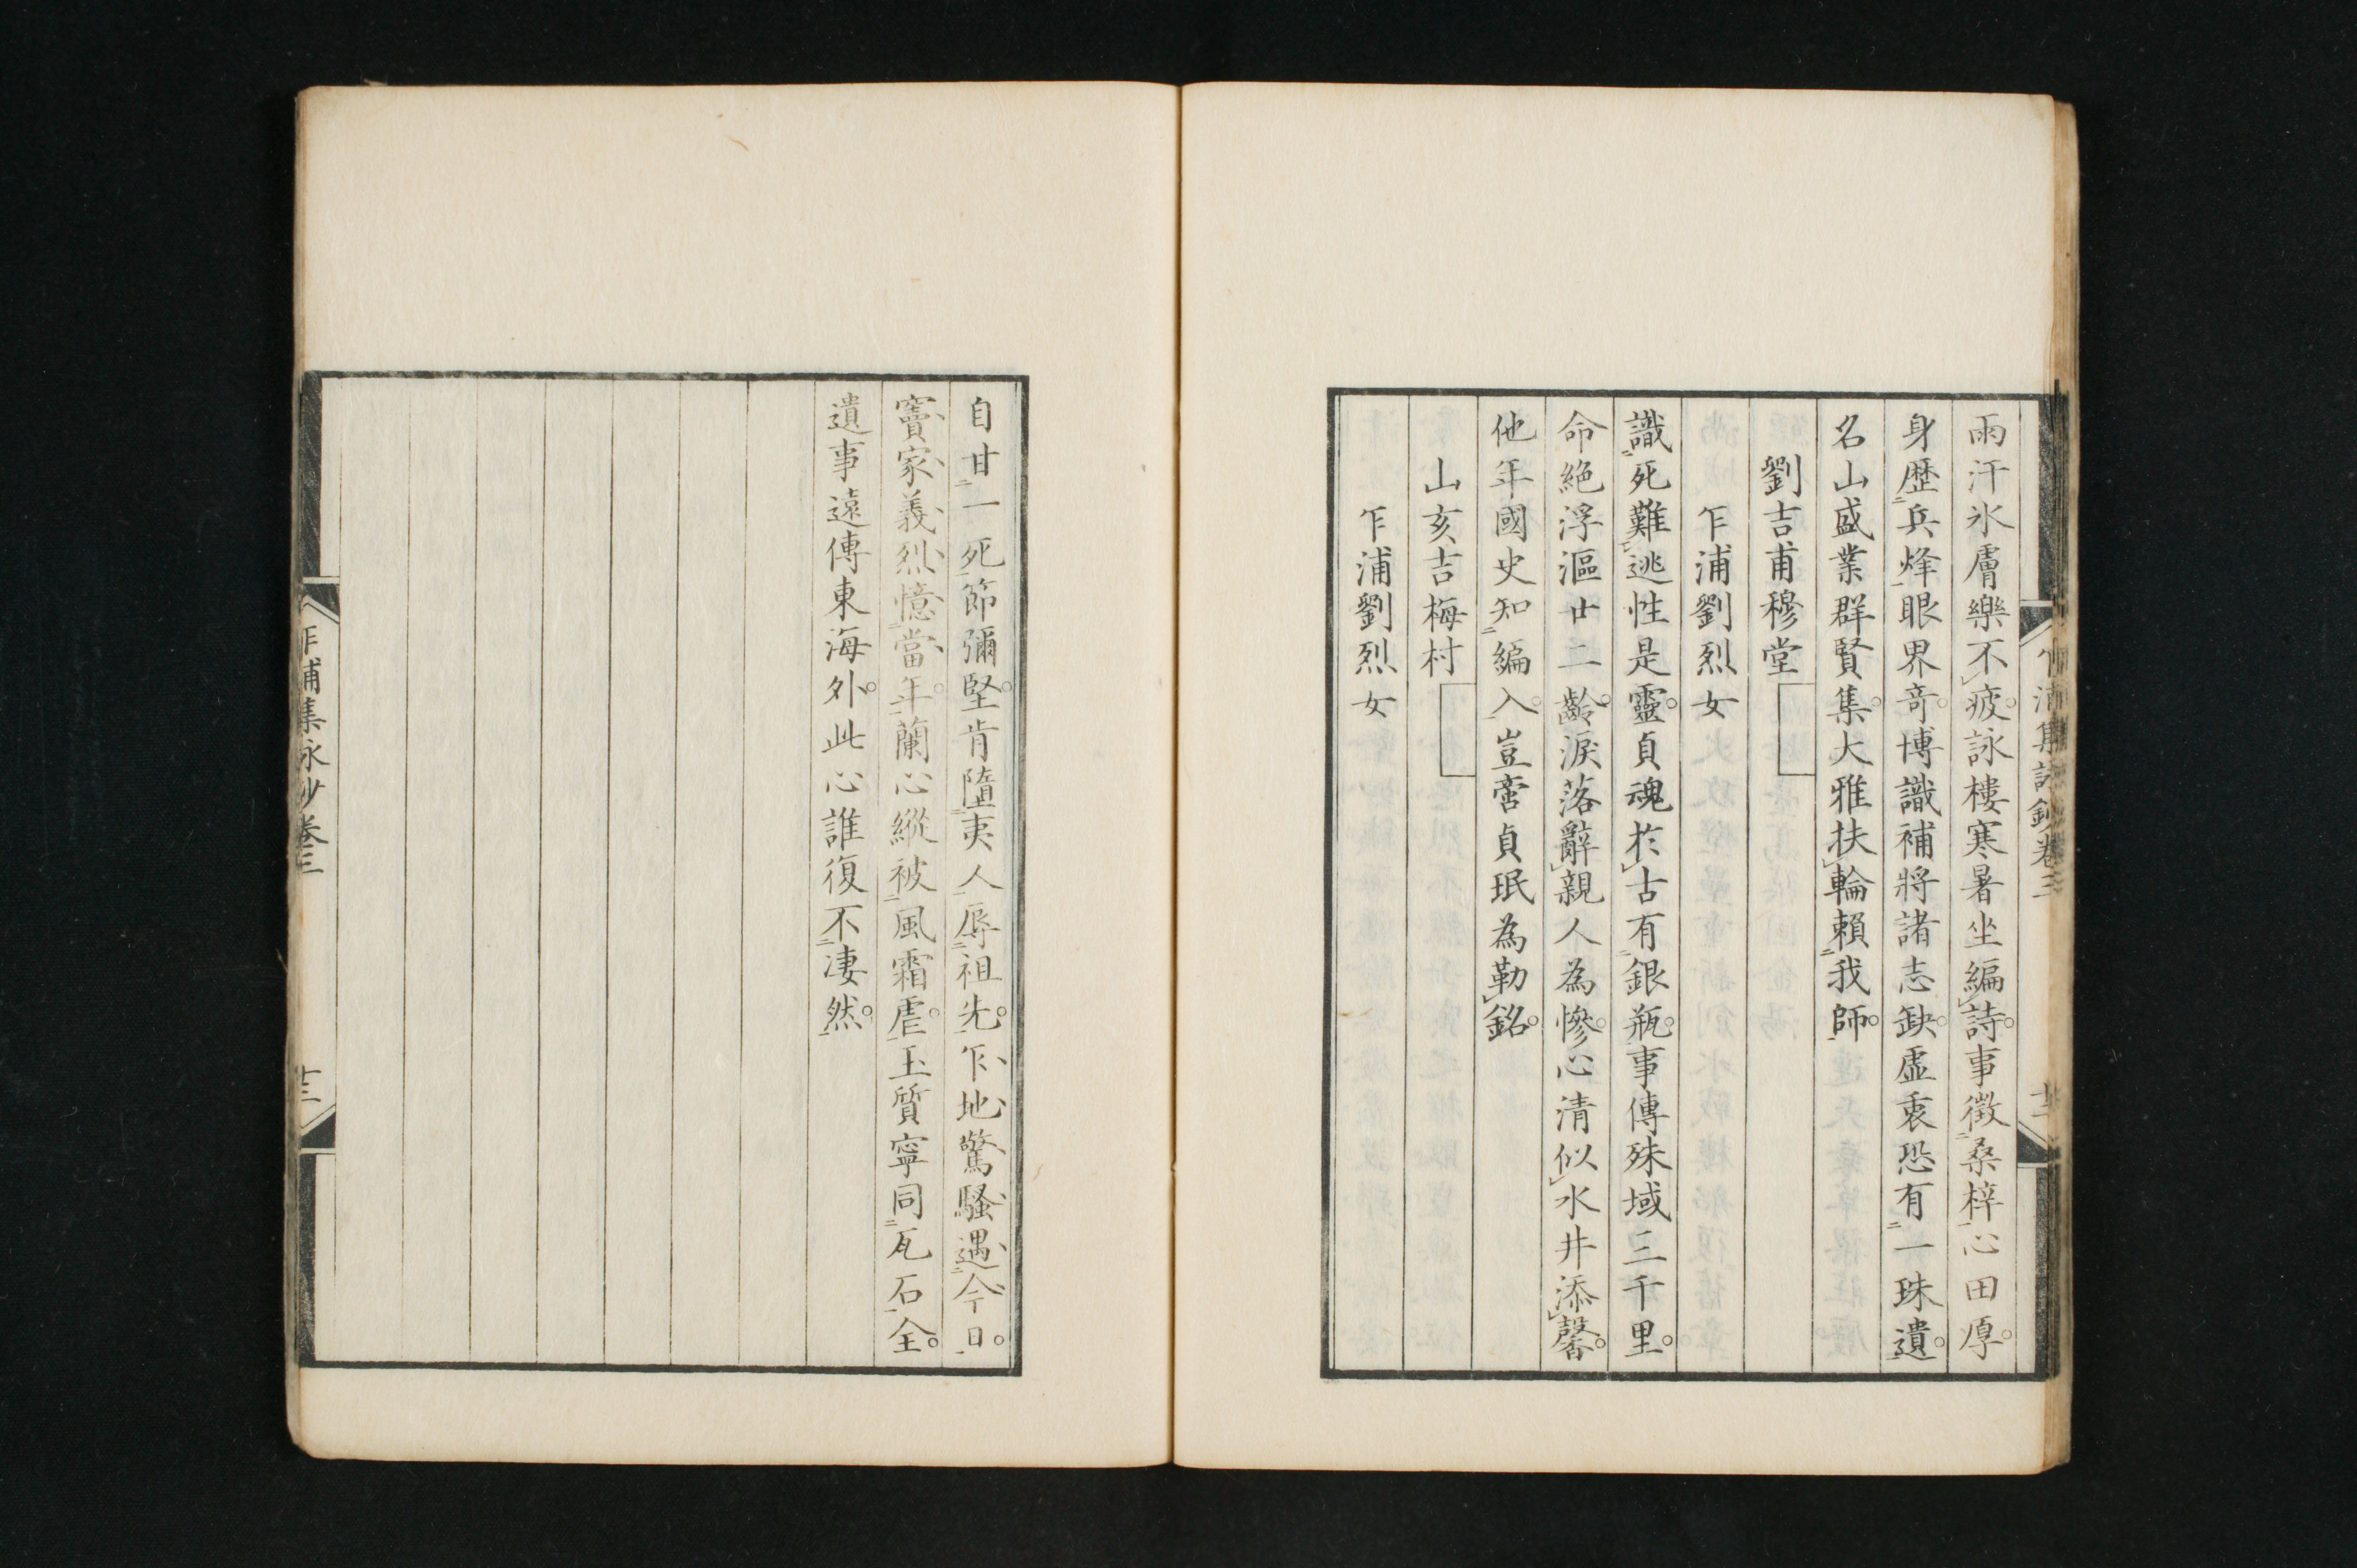 雨汗氷膚樂不疲詠樓寒暑坐編詩事徵桑梓心田厚
身歷兵烽眼界奇博識補將諸志缺虛衷恐有一珠遺
名山盛業群賢集大雅扶輪賴我師
劉吉甫穆堂
乍浦劉烈女
識死難逃性是靈貞魂於古有銀瓶事傳殊域三千里
命絶浮漚廿二齡淚落辭親人為慘心清似水井添馨
他年國史知編入豈啻貞珉為勒銘
山亥吉梅村
乍浦劉烈女
自甘一死節彌堅肯墮夷人辱祖先乍地驚騷遇今日
竇家義烈憶當年蘭心縱被風霜虐玉質寧同瓦石全
遺事遠傳東海外此心誰復不凄然
乍浦集詠鈔卷三
乍浦集詠鈔卷三
十三